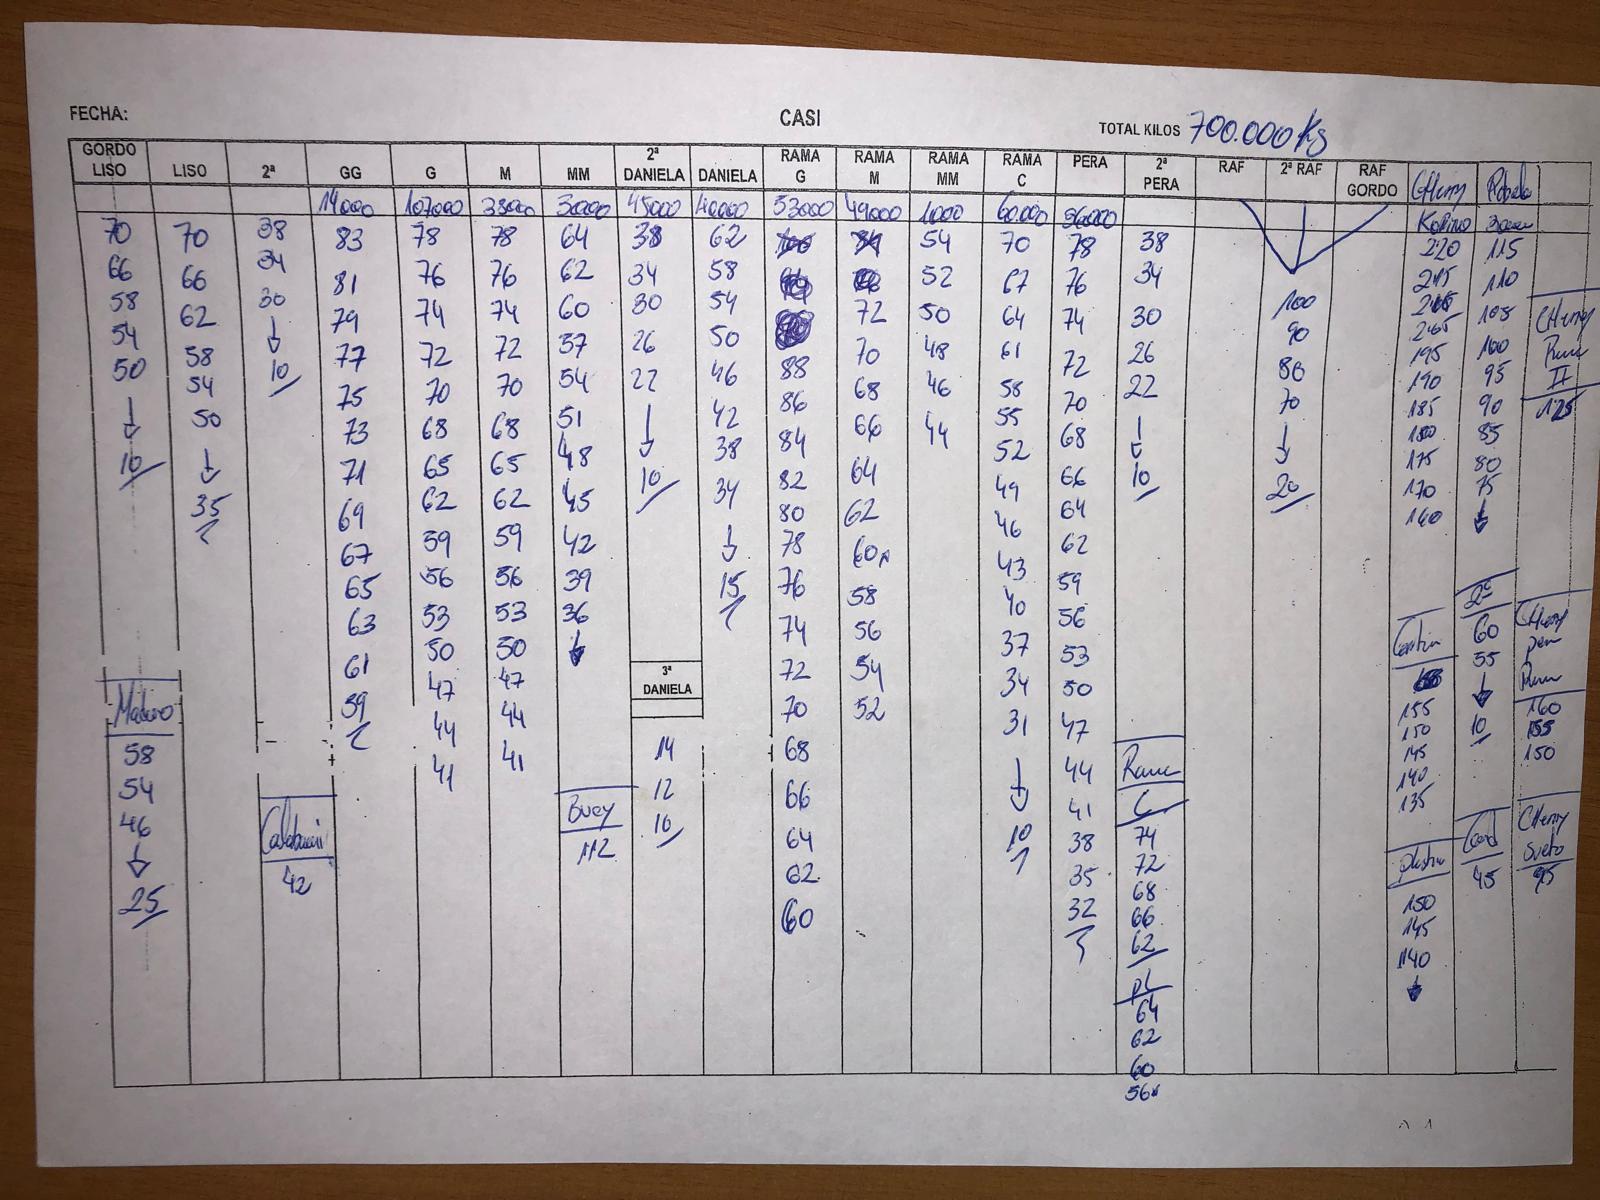 FECHA:
CASI
TOTAL KILOS 700.000 Kg
GORDO LISO
LISO
2ª
GG
G
M
MM
2ª DANIELA
DANIELA
RAMA G
RAMA M
RAMA MM
RAMA C
PERA
2ª PERA
RAF
2ª RAF
RAF GORDO
CHerry
14000 107000 38000 30000 45000 40000 53000 49000 1000 60.000 56000
70
66
58
54
50
↓
10
Maduro
58
54
46
↓
25
70
66
62
58
54
50
↓
35
38
34
30
↓
10
42
83
81
79
77
75
73
71
69
67
65
63
61
59
78
76
74
72
70
68
65
62
59
56
53
50
47
44
41
78
76
74
72
70
68
65
62
59
56
53
50
47
44
41
64
62
60
57
54
51
48
45
42
39
36
↓
Buey
112
38
34
30
26
22
↓
10
3ª DANIELA
14
12
10
62
58
54
50
46
42
38
34
↓
15
88
86
84
82
80
78
76
74
72
70
68
66
64
62
60
72
70
68
66
64
62
60
58
56
54
52
54
52
50
48
46
44
70
67
64
61
58
55
52
49
46
43
40
37
34
31
↓
10
78
76
74
72
70
68
66
64
62
59
56
53
50
47
44
41
38
35
32
38
34
30
26
22
↓
10
Rama
C
74
72
68
66
62
pL
64
62
60
56
100
90
80
70
↓
20
220
215
205
195
190
185
180
175
170
160
155
150
145
140
135
150
145
140
↓
115
110
105
100
95
90
85
80
75
↓
2ª
60
55
↓
10
45
CHerry
Rama
II
125
CHerry
pera
Rama
160
155
150
CHerry
suelto
95